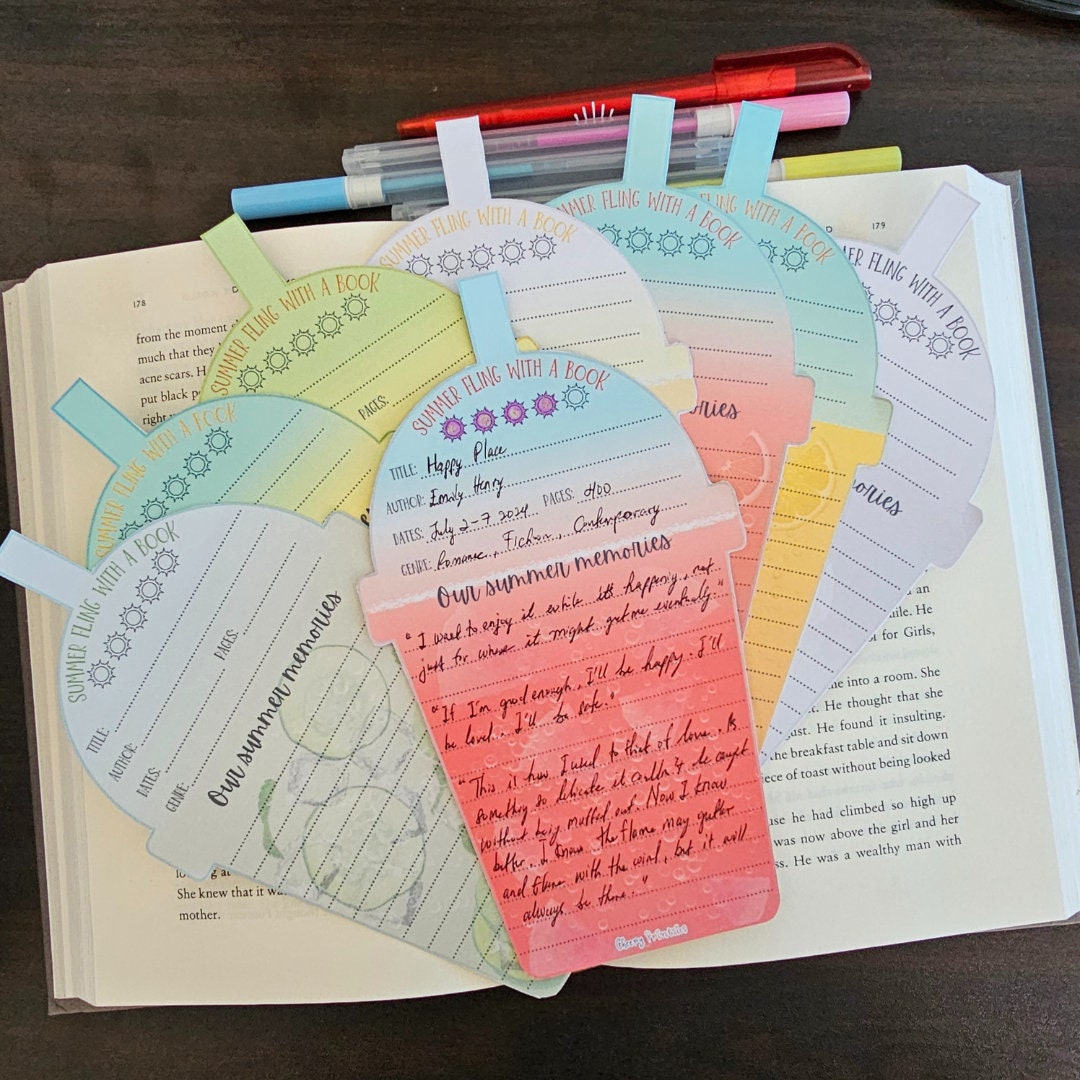 SUMMER FLING WITH A BOOK
SUMMER FLING WITH A BOOK
SUMMER FLING WITH A BOOK
MER FLING WITH A BOOK
FLING WITH A BOOK
ER FLING WITH A BOOK
SUMMER FLING WITH A BOOK
SUMMER FLING WITH A BOOK
178
from the moment
much that they
acne scars. H
put black p
right
PAGES:
ories
ories
179
D
TITLE: Happy Place
AUTHOR: Emily Henry
DATES: July 2-7 2024 PAGES: 400
GENRE: Romance, Fiction, Contemporary
Our summer memories
"I want to enjoy it while it's happening, not
just for where it might get me eventually"
"If I'm good enough, I'll be happy. I'll
be loved. I'll be safe."
"This is how I used to think of love. As
something so delicate it couldn't be caught
without being snuffed out. Now I know
better. I know the flame may gutter
and flare with the wind, but it will
always be there."
Cheery Printables
TITLE:
AUTHOR:
DATES:
PAGES:
GENRE:
Our summer memories
She knew that it wa
mother.
an
ile. He
for Girls,
me into a room. She
. He thought that she
ust. He found it insulting.
the breakfast table and sit down
iece of toast without being looked
use he had climbed so high up
was now above the girl and her
ss. He was a wealthy man with